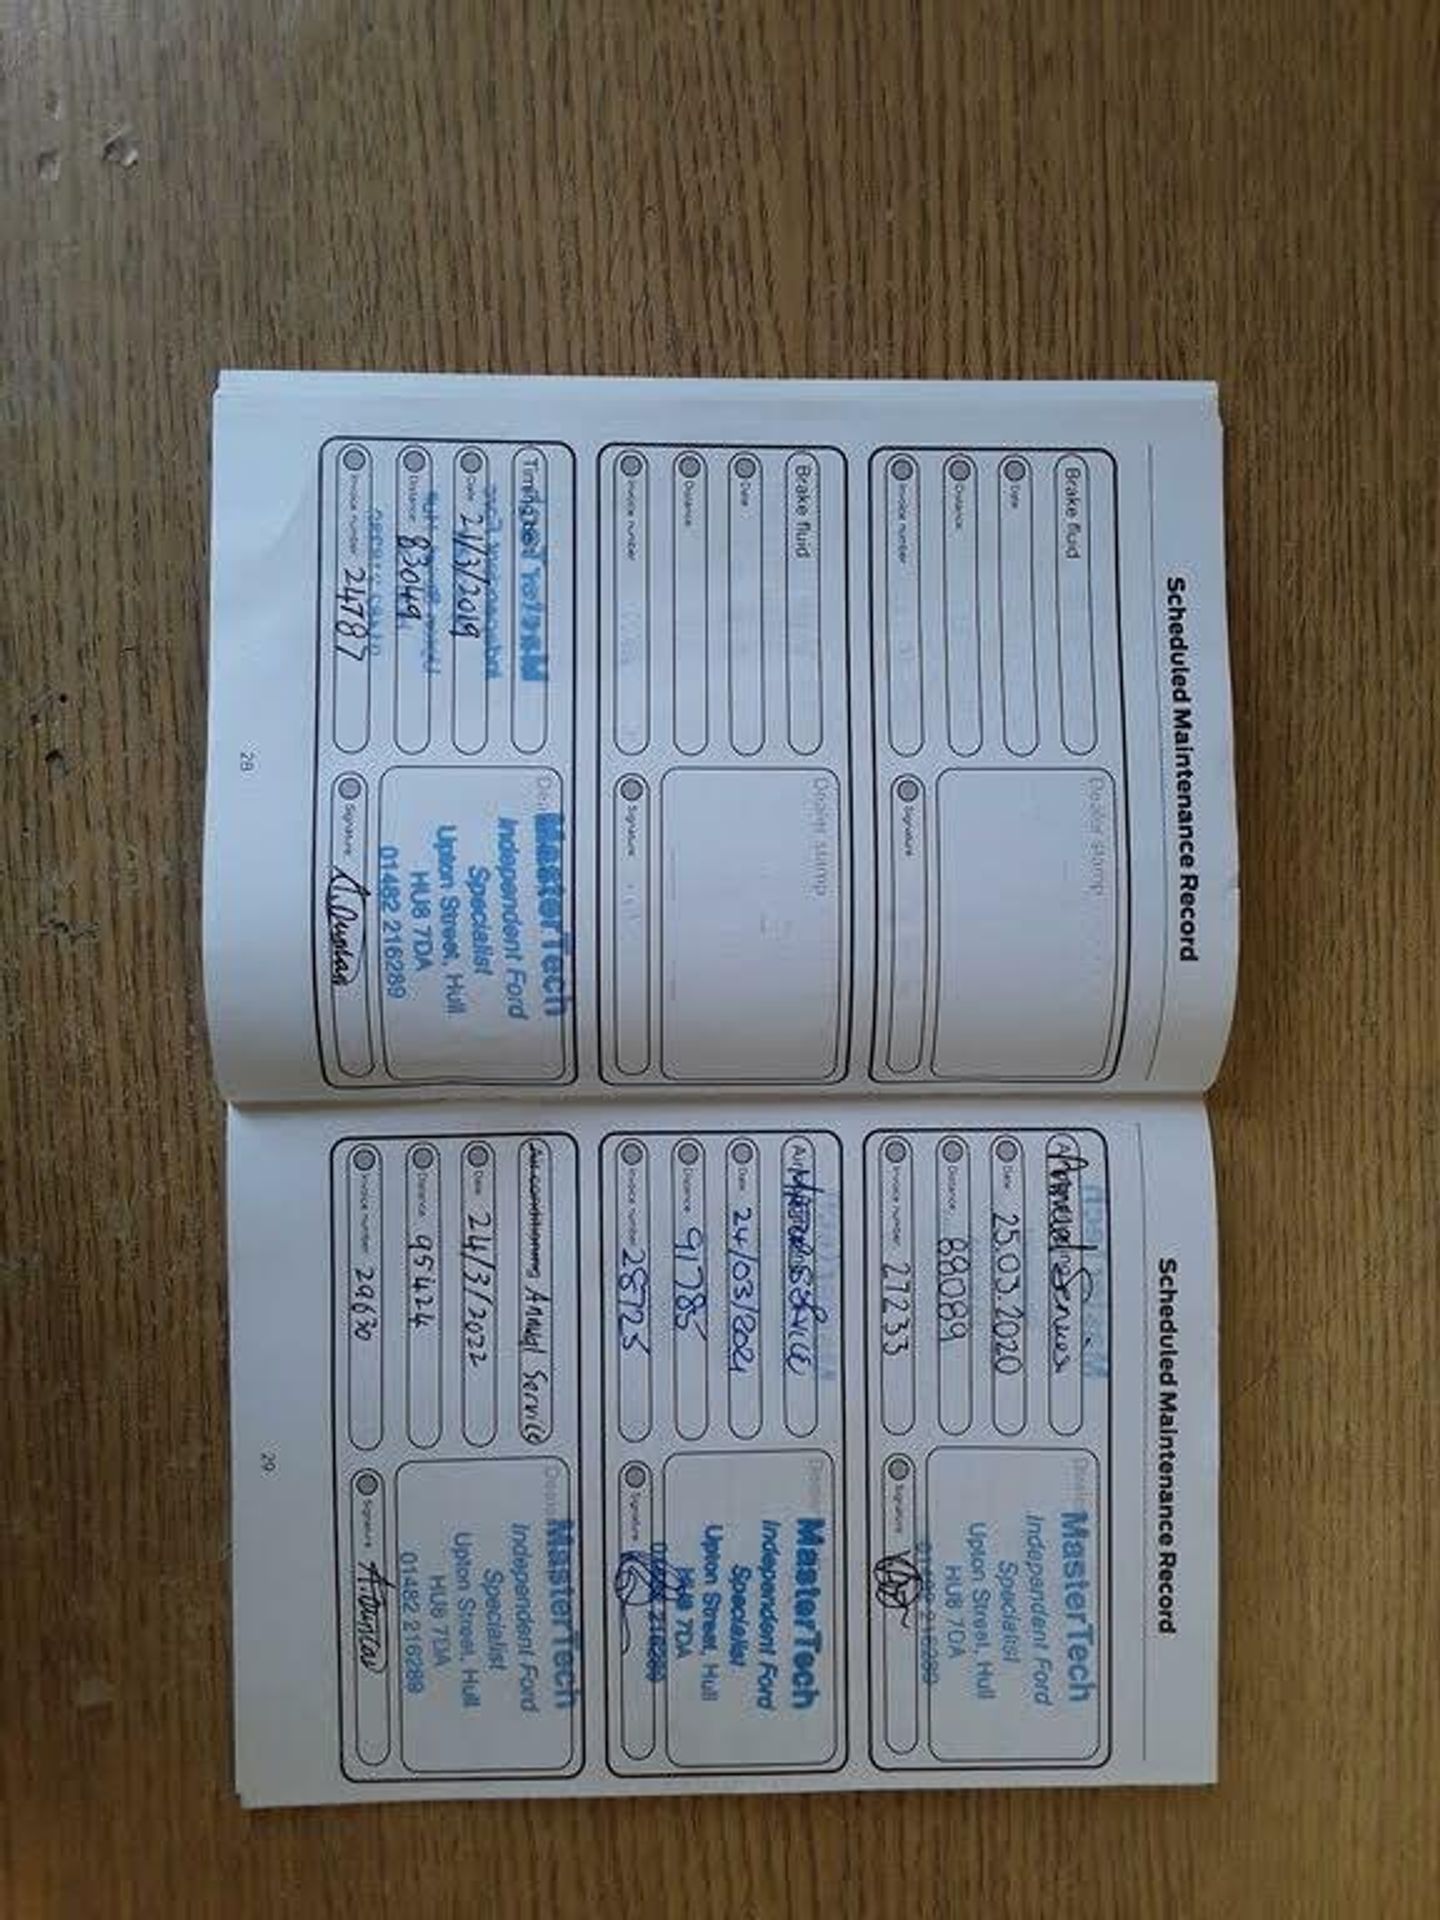 Scheduled Maintenance Record
Brake fluid
Date
Distance
Invoice number
Dealer stamp
Signature
Brake fluid
Date
Distance
Invoice number
Dealer stamp
Signature
Timing
Date 21/3/2019
Distance 83049
Invoice number 24787
MasterTech
Independent Ford
Specialist
Upton Street, Hull
HU8 7DA
01482 216289
Signature
28
Scheduled Maintenance Record
Annual Service
Date 25.03.2020
Distance 88089
Invoice number 27233
MasterTech
Independent Ford
Specialist
Upton Street, Hull
HU8 7DA
01482 216289
Signature
SERVICE
Date 24/03/2021
Distance 91785
Invoice number 28725
MasterTech
Independent Ford
Specialist
Upton Street, Hull
HU8 7DA
Signature
Air conditioning Annual Service
Date 24/3/2022
Distance 95424
Invoice number 29630
Dealer
MasterTech
Independent Ford
Specialist
Upton Street, Hull
HU8 7DA
01482 216289
Signature
29